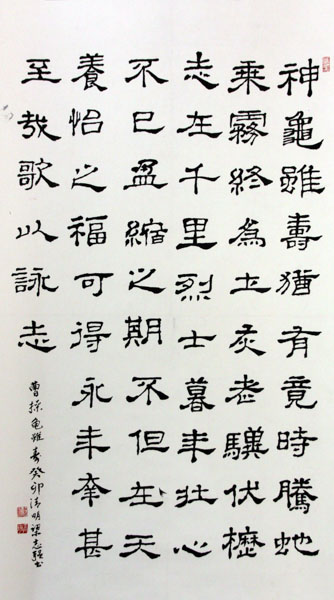 神龜雖壽猶有竟時騰虵
乘霧終為土灰老驥伏櫪
志在千里烈士暮年壯心
不已盈縮之期不但在天
養怡之福可得永年幸甚
至哉歌以詠志
曹操龟雖寿癸卯清明梁志强书